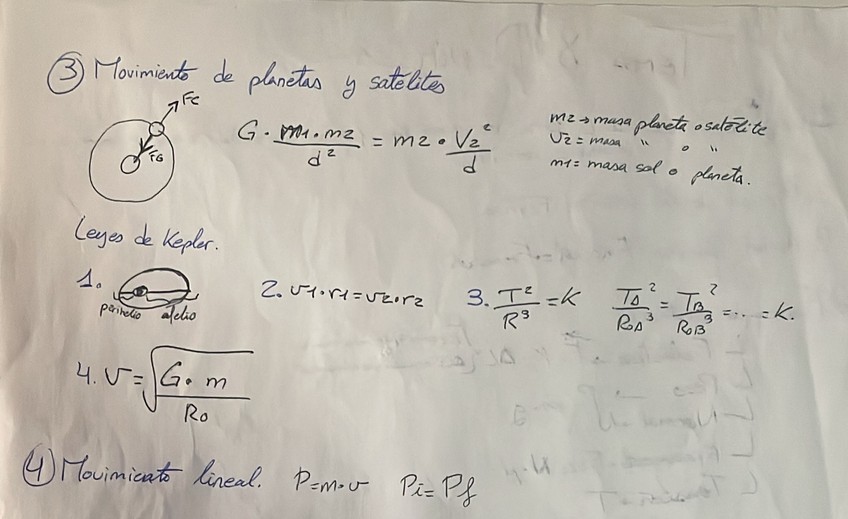 ③ Movimiento de planetas y satélites
FC
FG
G · m1 · m2 / d² = m2 · V2² / d
m2 → masa planeta o satélite
V2 = masa " o "
m1 = masa sol o planeta.
Leyes de Kepler.
1.
perihelio afelio
2. v1·r1 = v2·r2
3. T² / R³ = K TA² / R0A³ = TB² / R0B³ = ... = K.
4. V = √(G · m / R0)
④ Movimiento lineal. P = m·v Pi = Pf